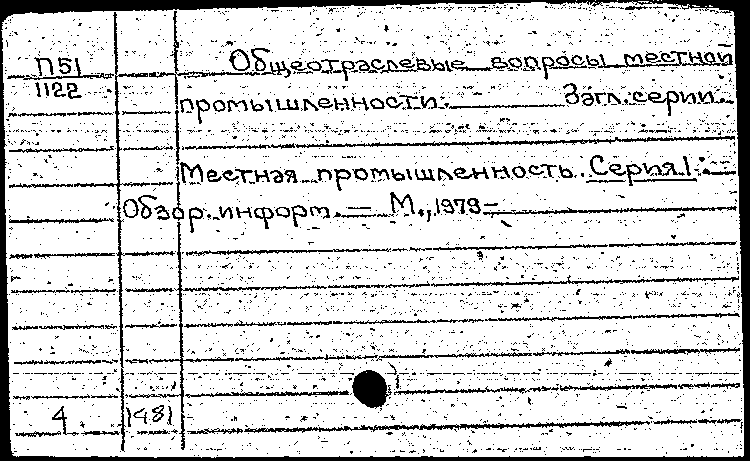 П51 Общеотраслевые вопросы местной
1122
промышленности. Загл. серии.
Местная промышленность. Серия 1.
Обзор. информ. — М., 1979 —
4 1981